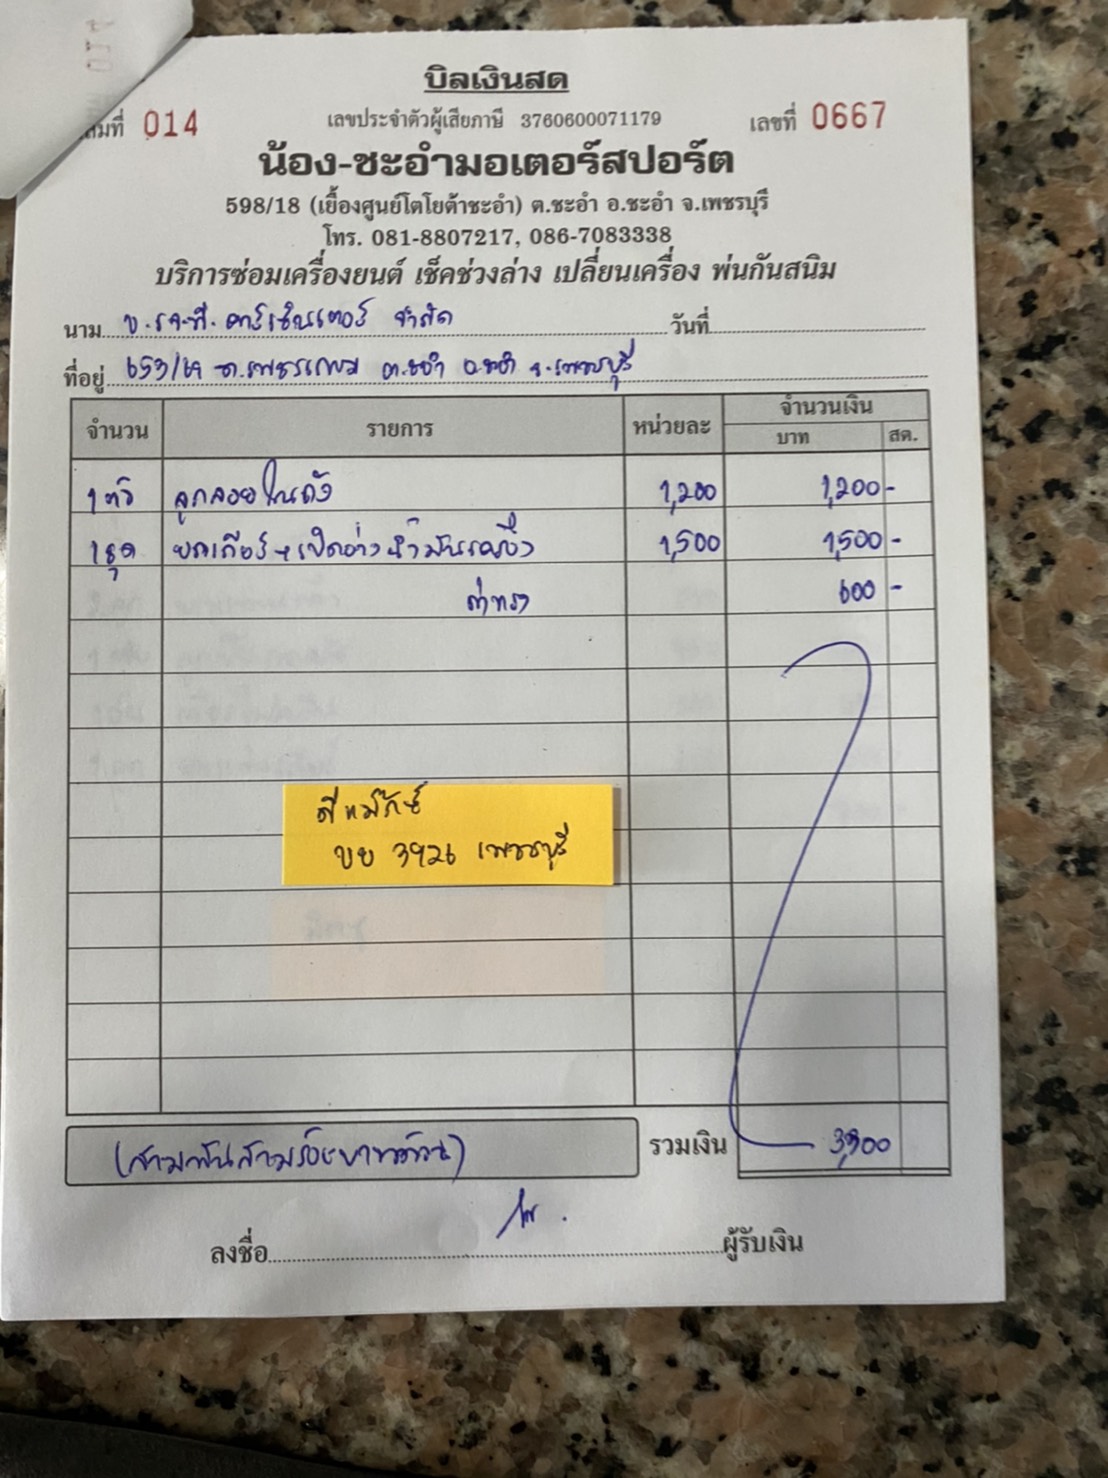 บิลเงินสด
เล่มที่ 014 เลขประจำตัวผู้เสียภาษี 3760600071179 เลขที่ 0667
น้อง-ชะอำมอเตอร์สปอร์ต
598/18 (เยื้องศูนย์โตโยต้าชะอำ) ต.ชะอำ อ.ชะอำ จ.เพชรบุรี
โทร. 081-8807217, 086-7083338
บริการซ่อมเครื่องยนต์ เช็คช่วงล่าง เปลี่ยนเครื่อง พ่นกันสนิม
นาม บ. คาร์เซ็นเตอร์ จำกัด วันที่
ที่อยู่ ถ.เพชรเกษม ต.ชะอำ อ.ชะอำ จ.เพชรบุรี
จำนวน รายการ หน่วยละ จำนวนเงิน
บาท สต.
1 ตัว ลูกลอยในถัง 1,200 1,200 -
1 ชุด ยกเกียร์ + เปิดอ่างน้ำมันเครื่อง 1,500 1,500 -
ค่าแรง 600 -
บย 3926 เพชรบุรี
(สามพันสามร้อยบาทถ้วน) รวมเงิน 3,300
ลงชื่อ ผู้รับเงิน